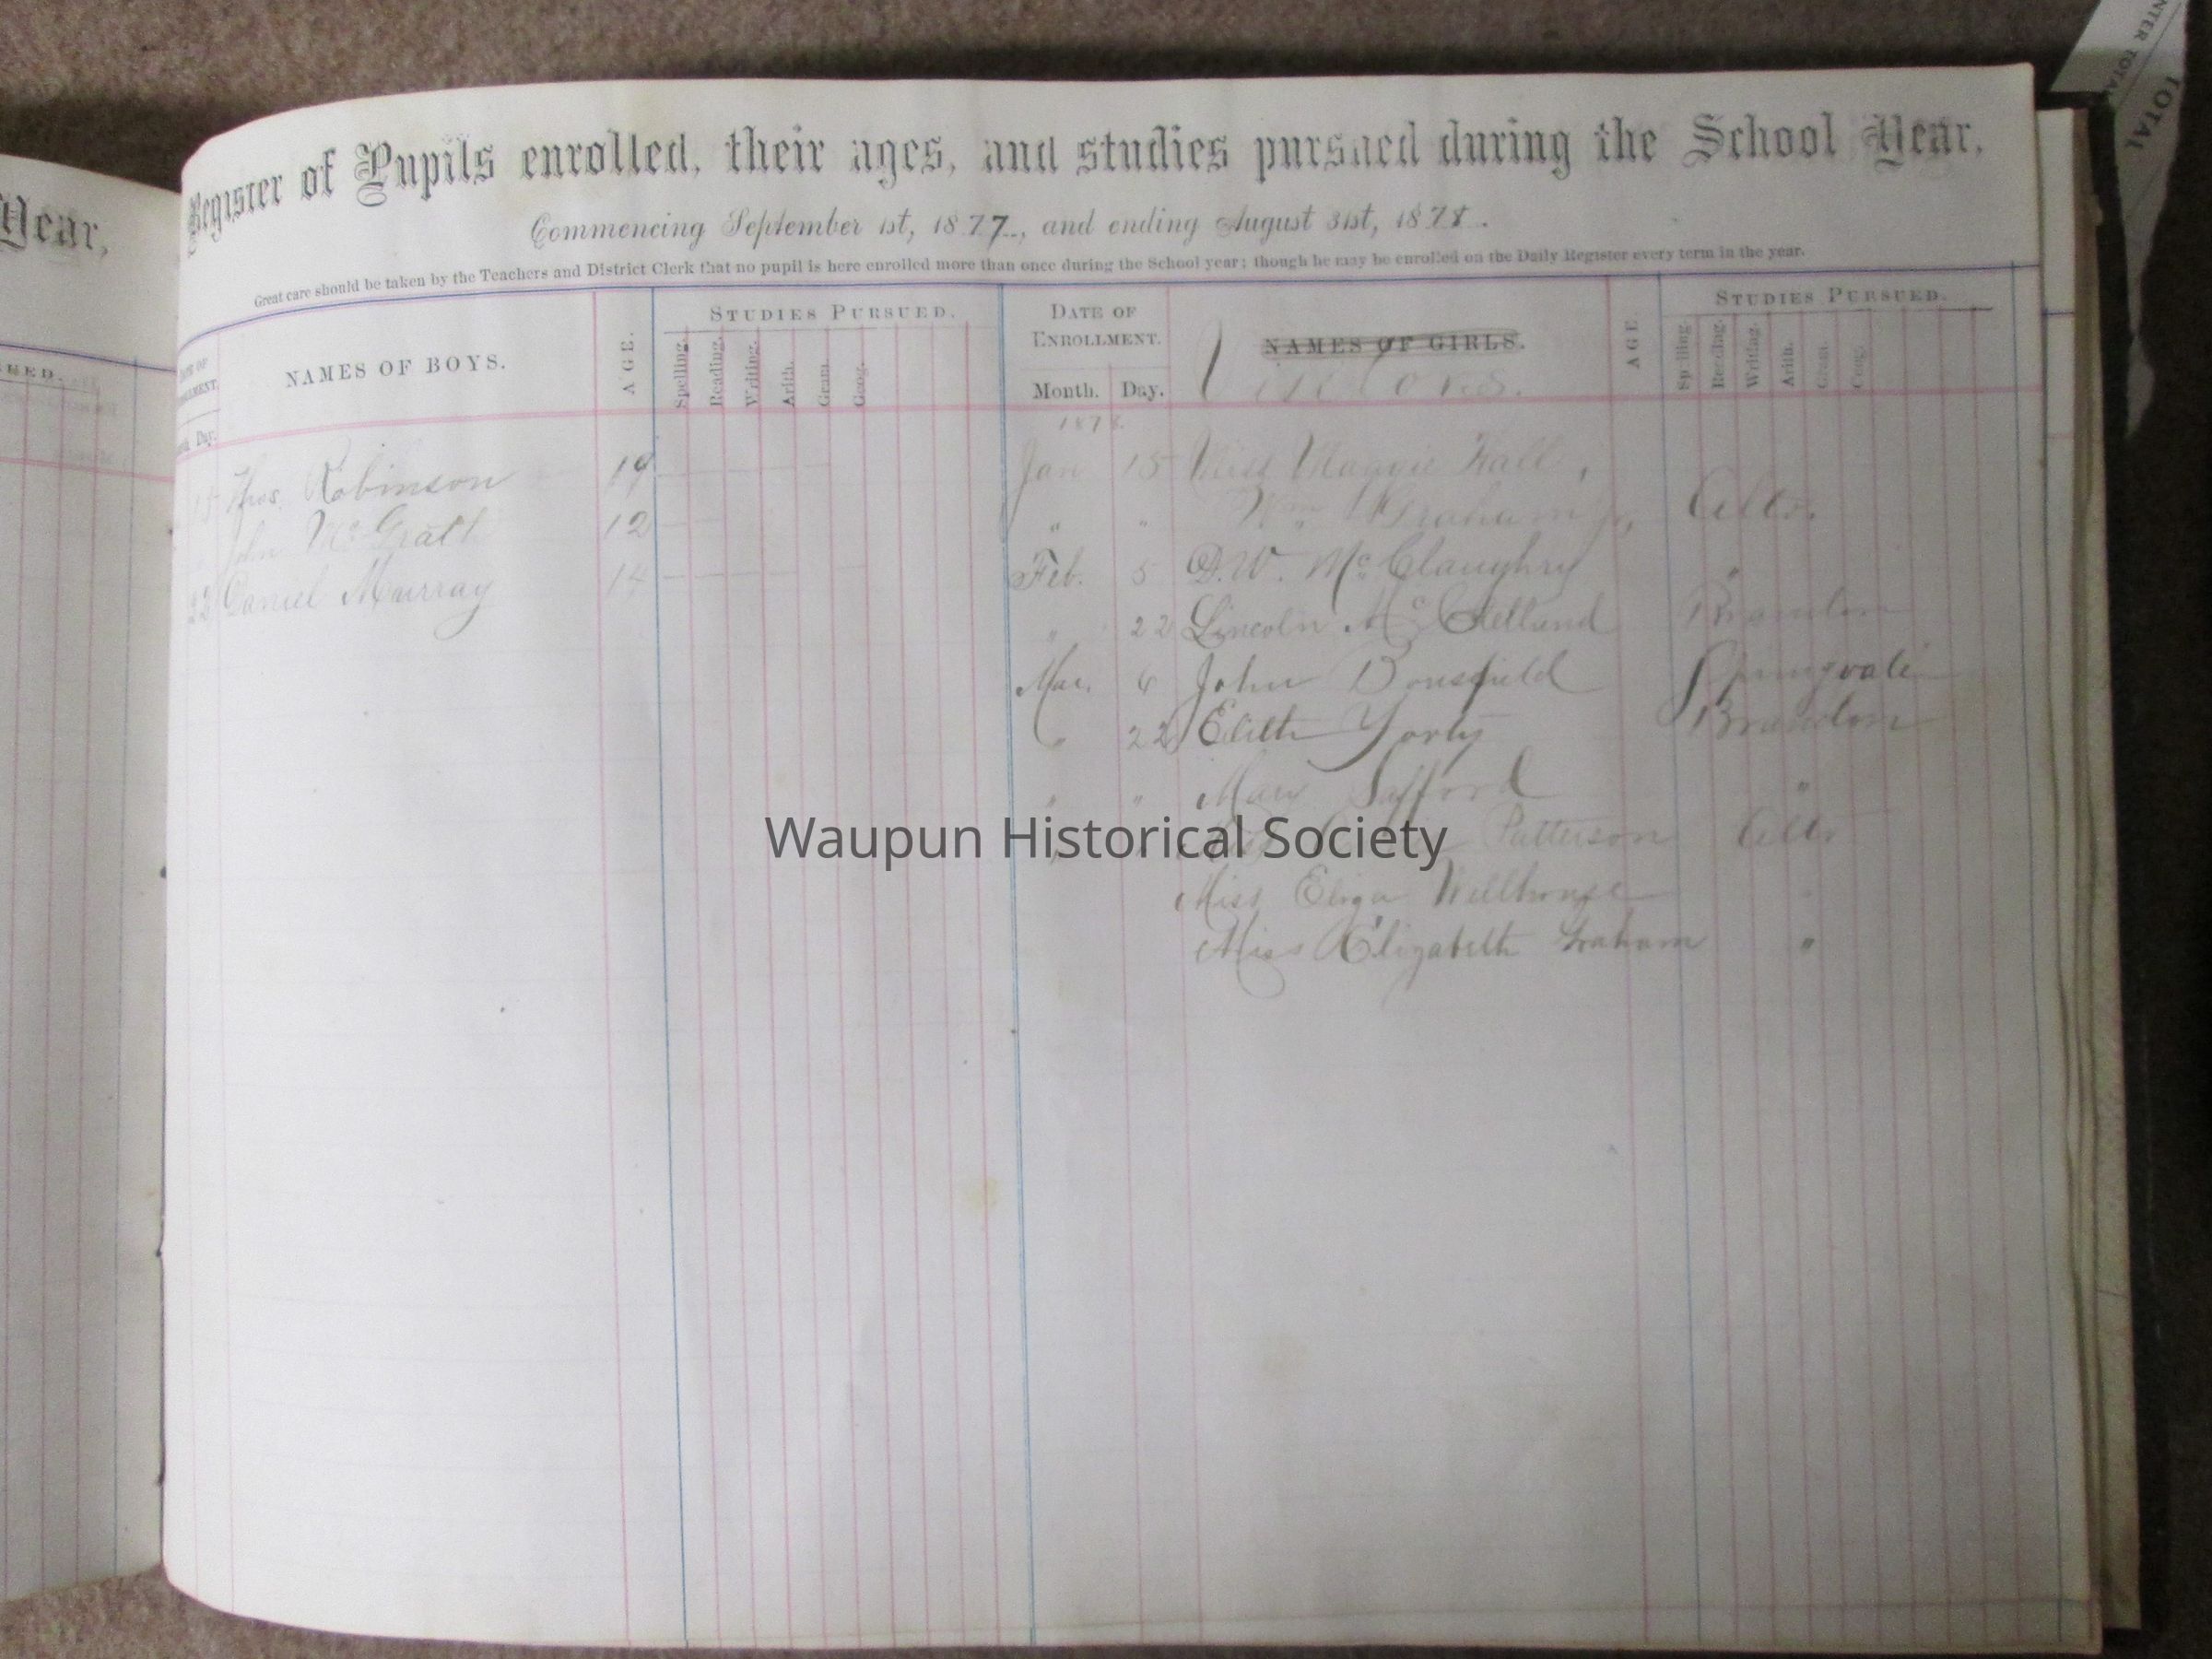 Year,
Register of Pupils enrolled, their ages, and studies pursued during the School Year,
Commencing September 1st, 1877., and ending August 31st, 1878.
Great care should be taken by the Teachers and District Clerk that no pupil is here enrolled more than once during the School year; though he may be enrolled on the Daily Register every term in the year.
NAMES OF BOYS.
AGE.
STUDIES PURSUED.
Spelling. Reading. Writing. Arith. Gram. Geog.
DATE OF ENROLLMENT.
Month. Day.
NAMES OF GIRLS.
AGE
STUDIES PURSUED.
Spelling. Reading. Writing. Arith. Gram. Geog.
Day.
Thos. Robinson 19
John McGrath 12
22 Daniel Murray 14
1878
Jan 15 Miss Maggie Hall,
" " Wm Graham Jr, Alto.
Feb. 5 D.W. McClaughry "
" 22 Lincoln McClelland Brandon
Mar. 6 John Bousfield Springvale
" 22 Edith Yorty Brandon
" " Mary Safford "
Patterson Alto
Miss Eliza Wellhouse
Miss Elizabeth Graham "
Waupun Historical Society
TOTAL